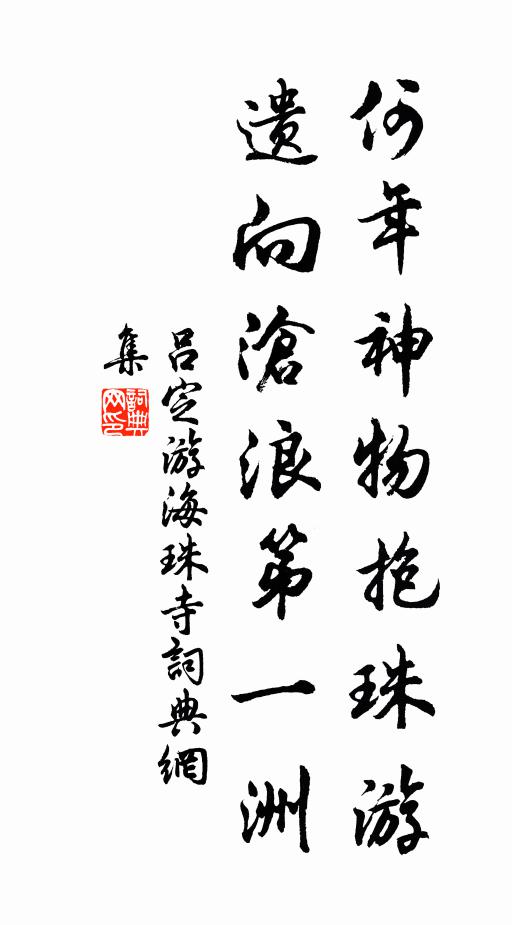 何年神物抱珠游
遗向滄浪第一洲
吕定游海珠寺詞典網
集
詞典网印